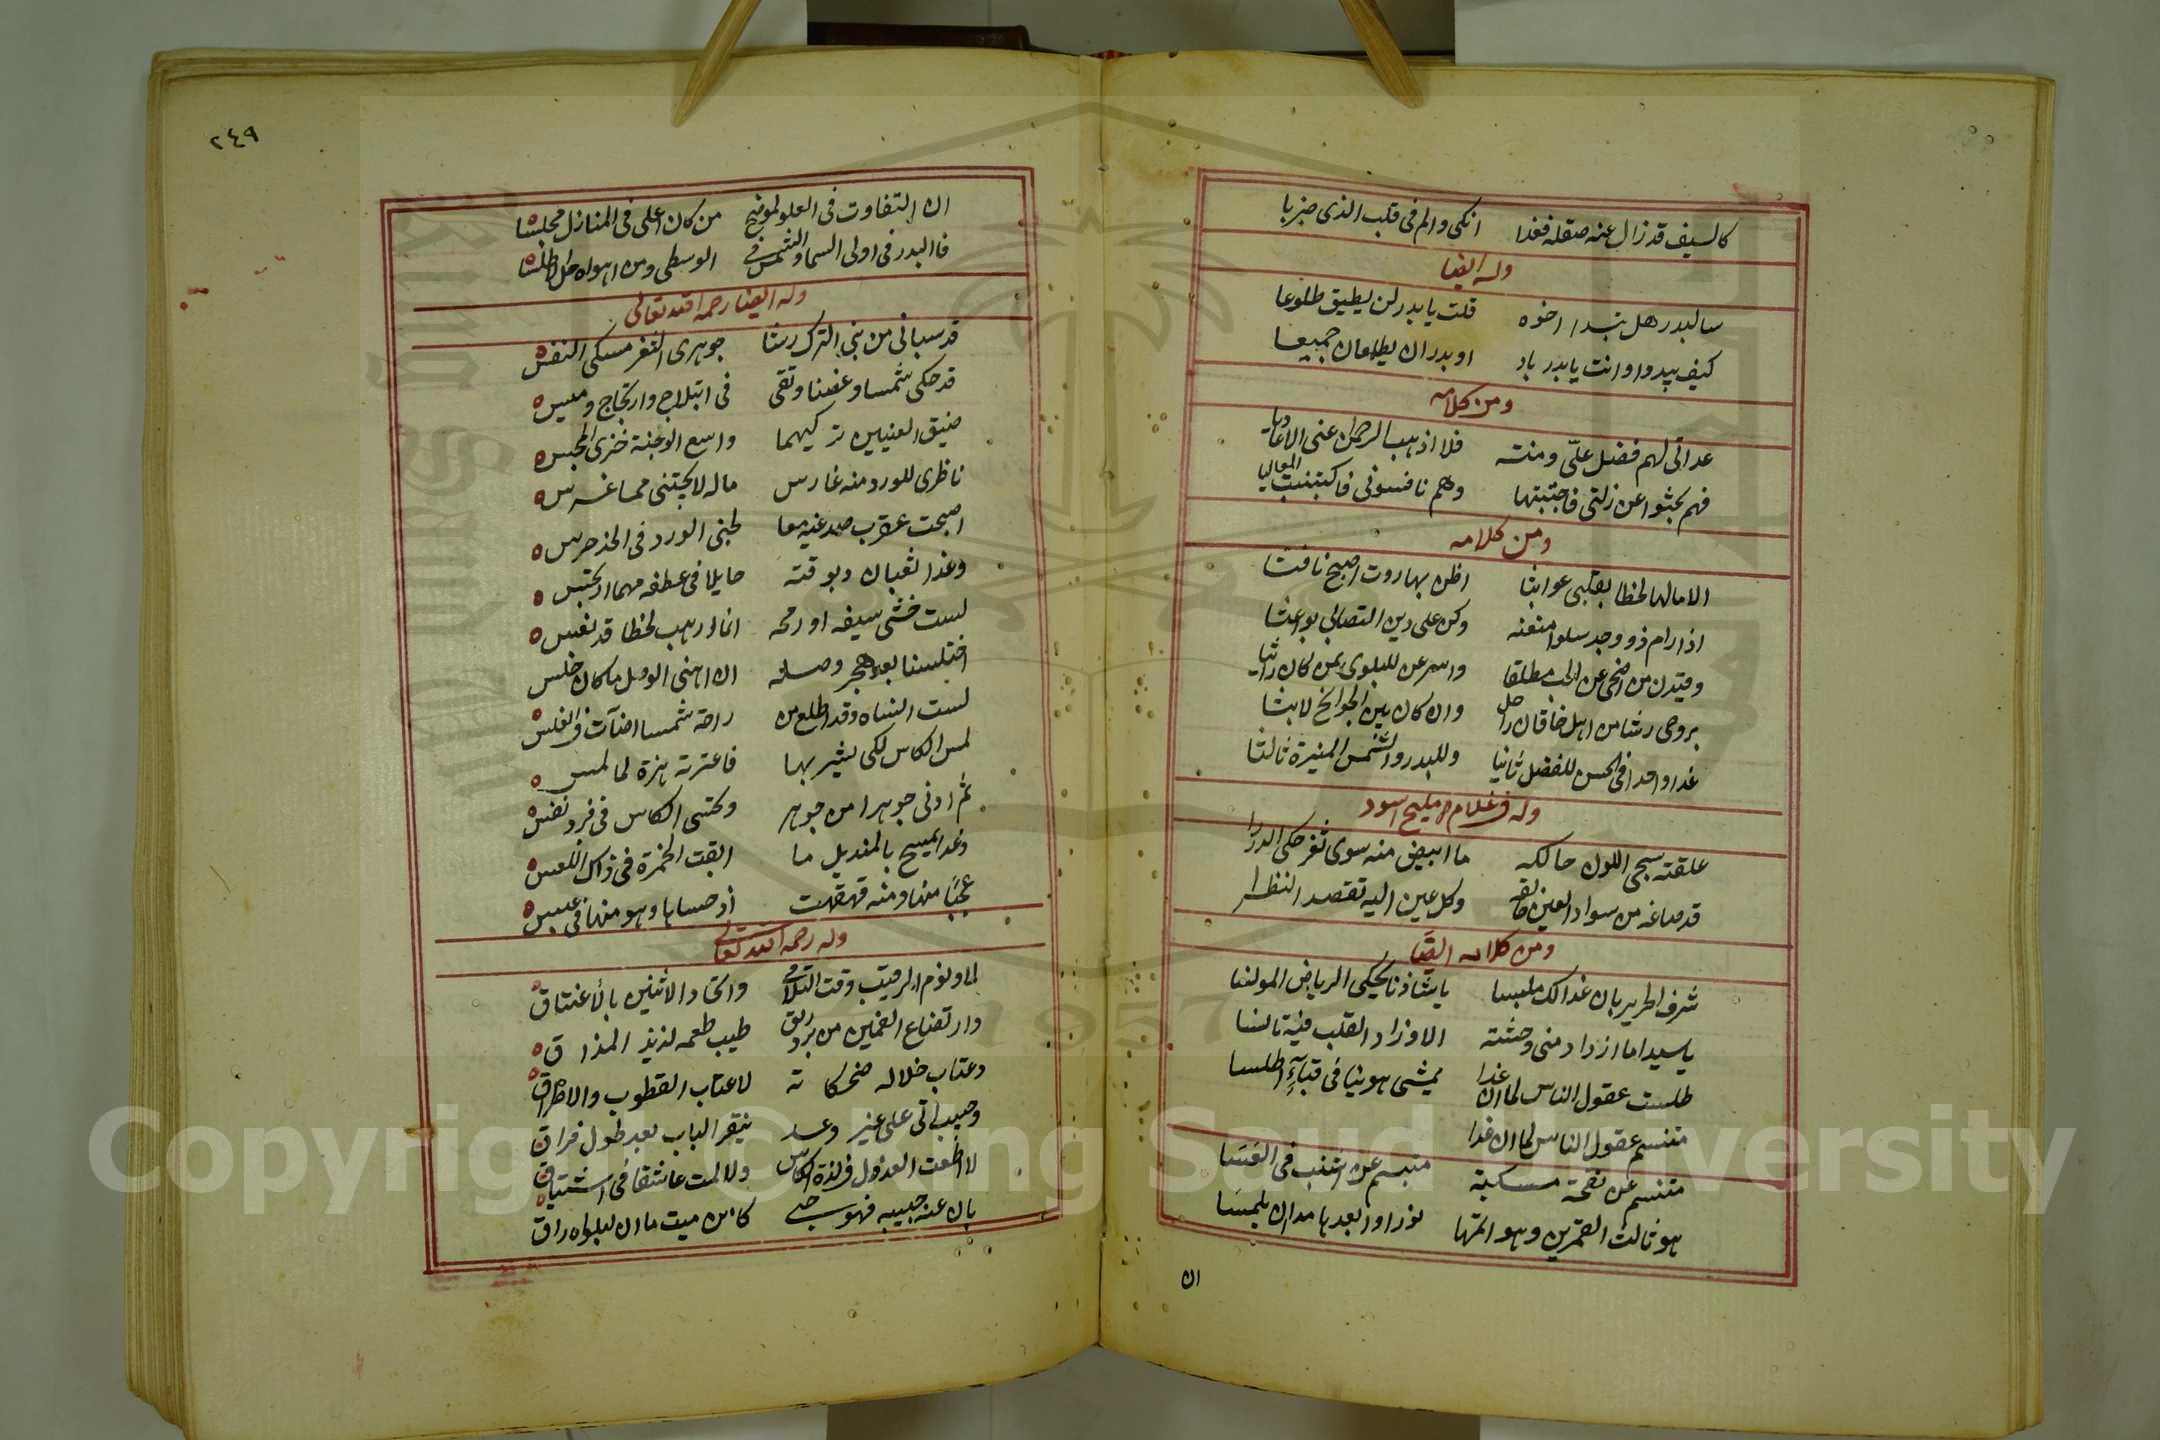 كالسيف قد زال عنه صقله فغدا انكى والم فى قلب الذى ضربا
وله ايضا
سالبدر هل تبدا اخوه قلت يا بدر لن يطيق طلوعا
كيف يبدوا وانت يا بدر باد او بدران يطلعان جميعا
ومن كلامه
عداتى لهم فضل علىّ ومنته فلا اذهب الرحمن عنى الاعاديا
فهم بحثوا عن زلتى فاجتنبتها وهم نافسونى فاكتسبت المعاليا
ومن كلامه
الا مالها لحظا بقلبى عوابثا اظن بهاروت اصبح نافثا
اذا رام ذو وجد سلوا منعنه وكن على دين التصابى بواعثا
وقيدن من اضحى عن الحب مطلقا واسرعن للبلوى بمن كان رائثا
بروحى رشا من اهل خاقان راحل وان كان بين الجوانح لابثا
غدا واحدا فى الحسن للفضل ثانيا وللبدر والشمس المنيرة ثالثا
وله فى غلام مليح اسود
علقته سبجى اللون حالكه ما ابيض منه سوى ثغر حكى الدررا
قد صاغه من سواد العين خالقه وكل عين اليه تقصد النظرا
ومن كلامه ايضا
شرف الحرير بان غدا لك ملبسا يا شاذنا يحكى الرياض المونسا
يا سيدا ما ازداد منى وحشته الا وزاد القلب فيه تانسا
طلست عقول الناس لما ان غدا يمشى هوينا فى قبآءٍ اطلسا
متنسم عقول الناس لما ان غدا
متنسم عن نفحة مسكية متبسم عن اشنب فى العَسَا
هو ثالث القمرين وهو اتمها نورا وابعدها مدا ان يلمسَا
ان
٢٤٩
ان التفاوت فى العلو لموضح من كان اعلى فى المنازل مجلسا
فاالبدر فى اولى السما والشمس فى الوسطى ومن اهواه حل الاطلسا
وله ايضا رحمه الله تعالى
قد سبانى من بنى الترك رشا جوهرى الثغر مسكى النفس
قد حكى شمسا وغصنا ونقى فى ابتلاج وارتجاج وميس
ضيق العينين تركيهما واسع الوجنة خزى المجس
ناظرى للورد منه غارس ماله لا يجتنى مما غرس
اصبحت عقرب صدغيه معا لجنى الورد فى الخد حرس
وغدا ثعبان دبوقته حايلا فى عطفه مهما ارتجس
لست خشى سيفه او رمحه انما ارهب لحظا قد نعس
اختلسنا بعد هجر وصله ان اهنى الوصل ما كان خلس
لست انساه وقد اطلع من راحه شمسا اضآت فى الغلس
لمس الكاس لكى يشربها فاعترته هزة لما لمس
ثم ادنى جوهرا من جوهر وكتسى الكاس فى فرد نفس
وغدا يمسح بالمنديل ما ابقت الخمرة فى ذاك اللعس
عجبًا منها ومنه قهقهت اذ حساها وهو منها فى عبس
وله رحمه الله تعالى
لما ونوم الرقيب وقت التلاقى واتحاد الاثنين بالاعتناق
وارتضاع الفمين من برد ريق طيب طعمه لذيذ المذاق
وعتاب خلاله ضحكاته لا عتاب القطوب والاطراق
وحبيب اتى على غير وعد ينقر الباب بعد طول فراق
لا اطعت العذول فى لذة الكاس ولا لمت عاشقا فى اشتياق
بان عنه حبيبه فهو حى كاين ميت ما ان لبلواه راق
Copyright © King Saud University
1957